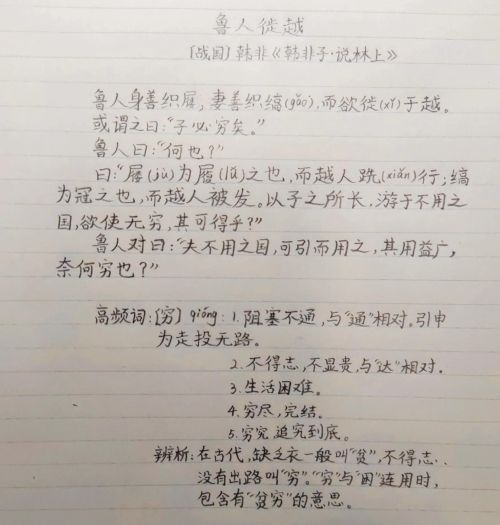 鲁人徙越
〔战国〕韩非《韩非子·说林上》
鲁人身善织屦,妻善织缟(gǎo),而欲徙(xǐ)于越。
或谓之曰:“子必穷矣。”
鲁人曰:“何也?”
曰:“屦(jù)为履(lǚ)之也,而越人跣(xiǎn)行;缟
为冠之也,而越人被发。以子之所长,游于不用之
国,欲使无穷,其可得乎?”
鲁人对曰:“夫不用之国,可引而用之,其用益广,
奈何穷也?”
高频词:〔穷〕qióng:1.阻塞不通,与“通”相对。引申
为走投无路。
2.不得志,不显贵,与“达”相对.
3.生活困难。
4.穷尽,完结。
5.穷究 追究到底。
辨析:在古代,缺乏衣一般叫“贫”,不得志.
没有出路叫“穷”。“穷”与“困”连用时,
包含有“贫穷”的意思。